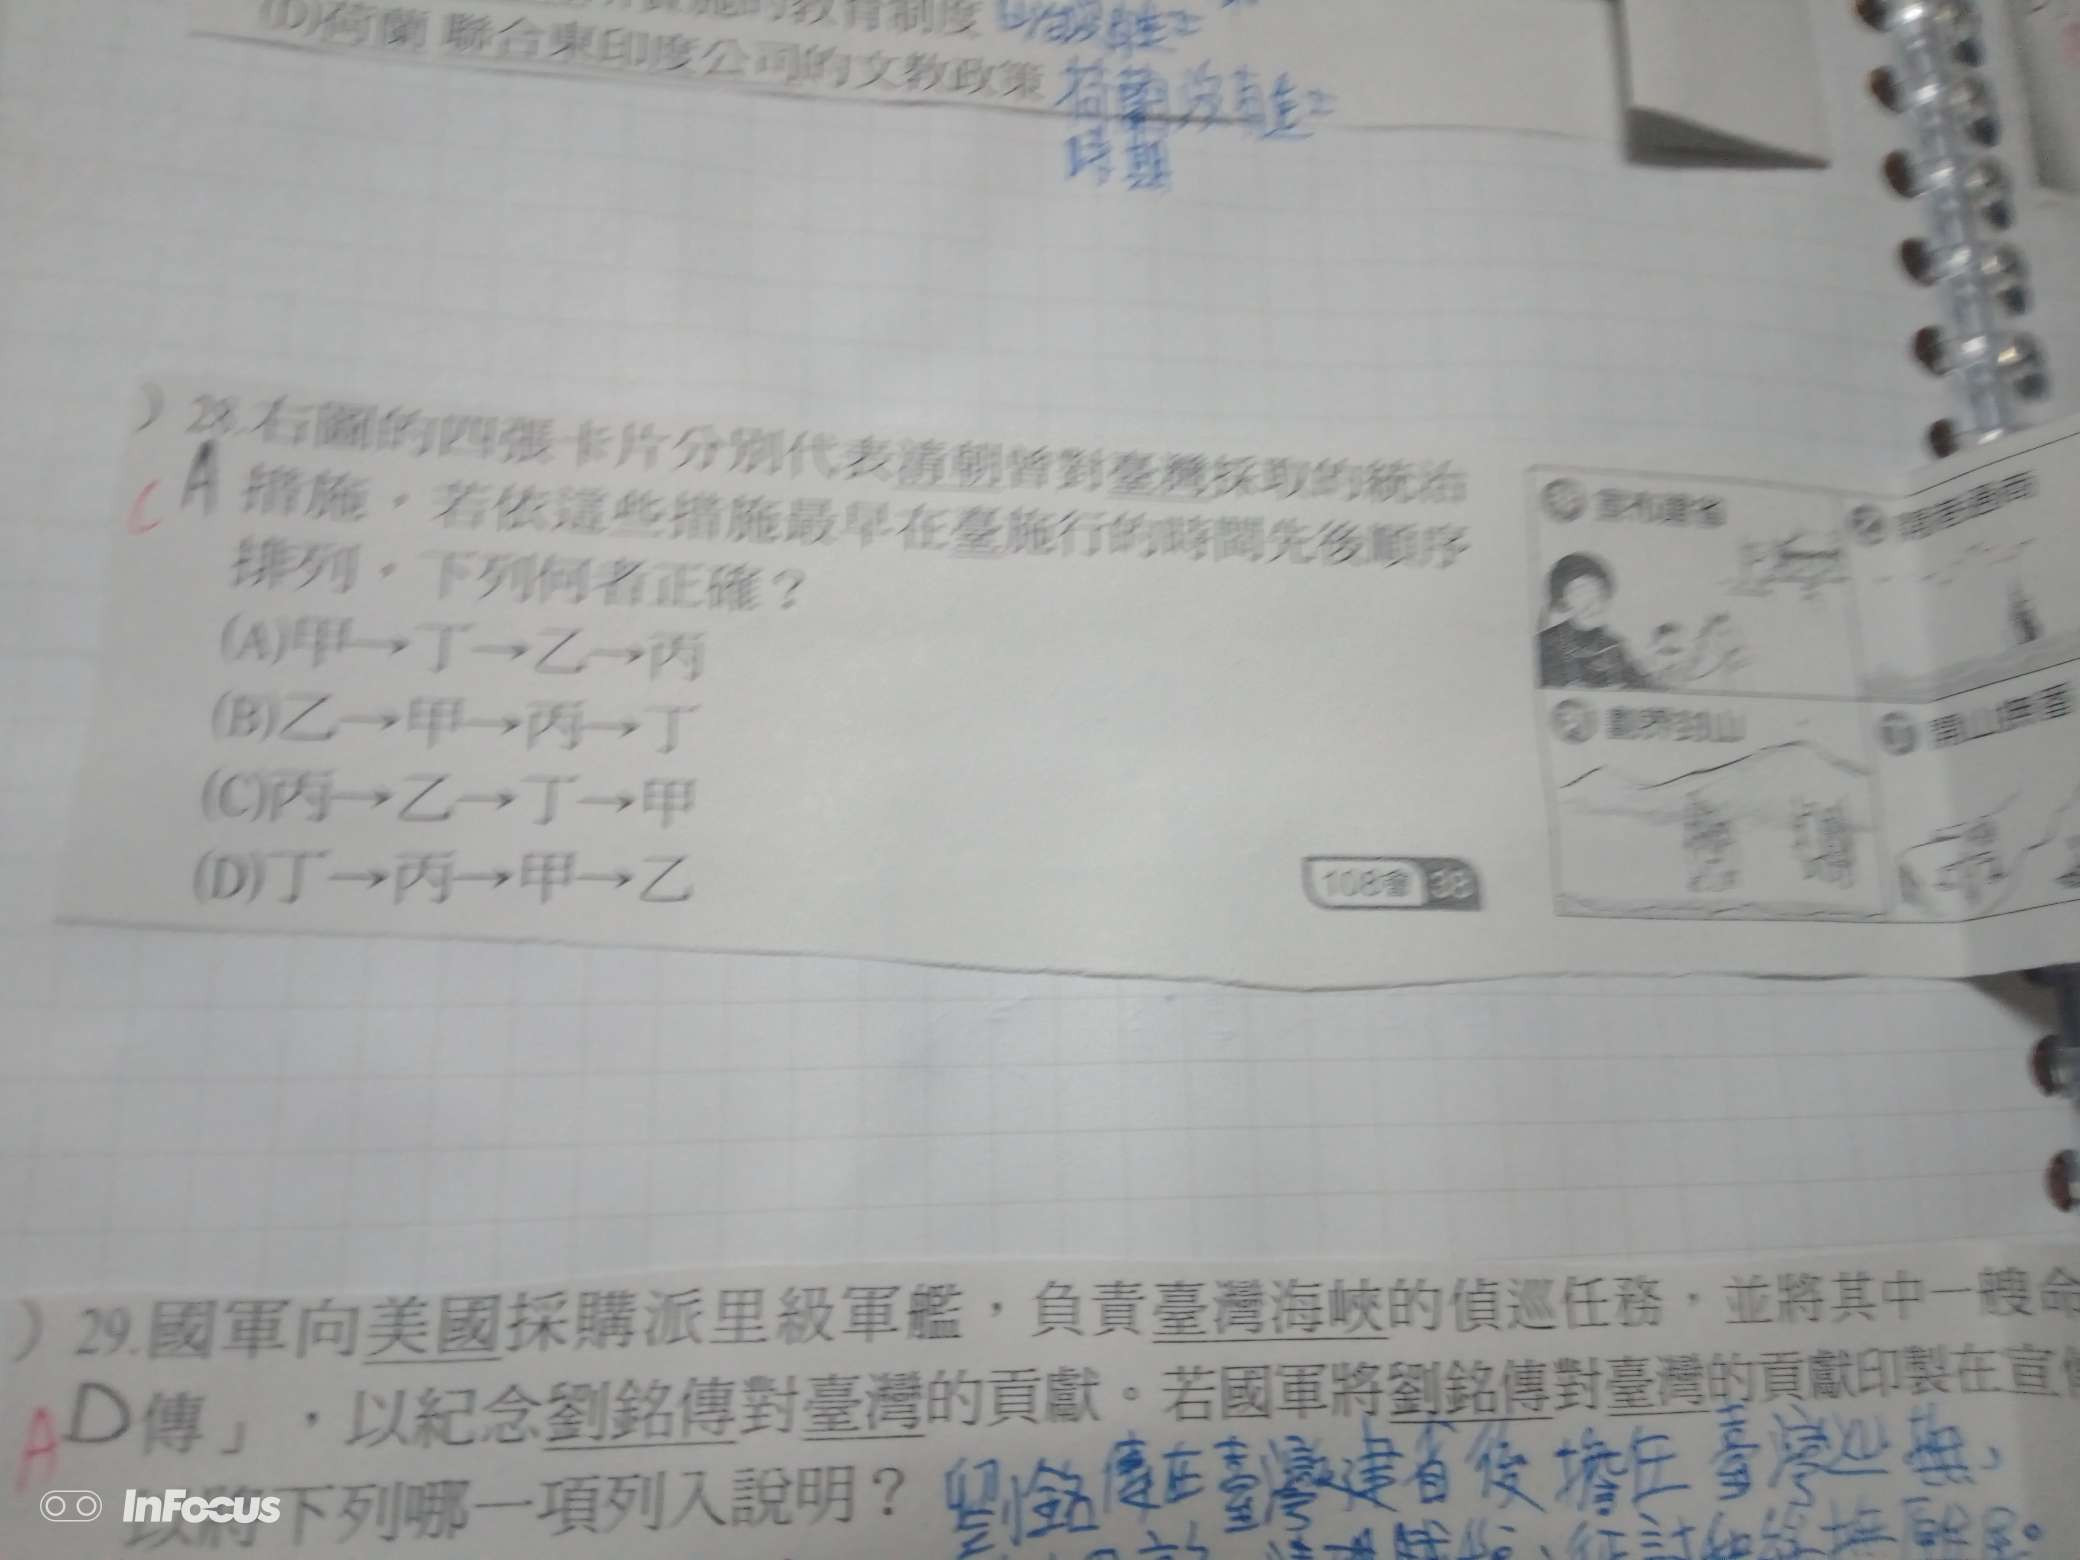 的教育制度
(D)荷蘭 聯合東印度公司的文教政策 荷蘭
時期
) 28.右圖的四張卡片分別代表清朝曾對臺灣採取的統治
A 措施,若依這些措施最早在臺施行的時間先後順序
C
排列,下列何者正確?
(A)甲→丁→乙→丙
(B)乙→甲→丙→丁
(C)丙→乙→丁→甲
(D)丁→丙→甲→乙
108會 38
宣布建省
開港通商
劃界封山
開山撫番
) 29.國軍向美國採購派里級軍艦,負責臺灣海峽的偵巡任務,並將其中一艘命
D 傳」,以紀念劉銘傳對臺灣的貢獻。若國軍將劉銘傳對臺灣的貢獻印製在宣
A
以將下列哪一項列入說明? 在臺灣建省後擔任臺灣巡撫、
InFocus